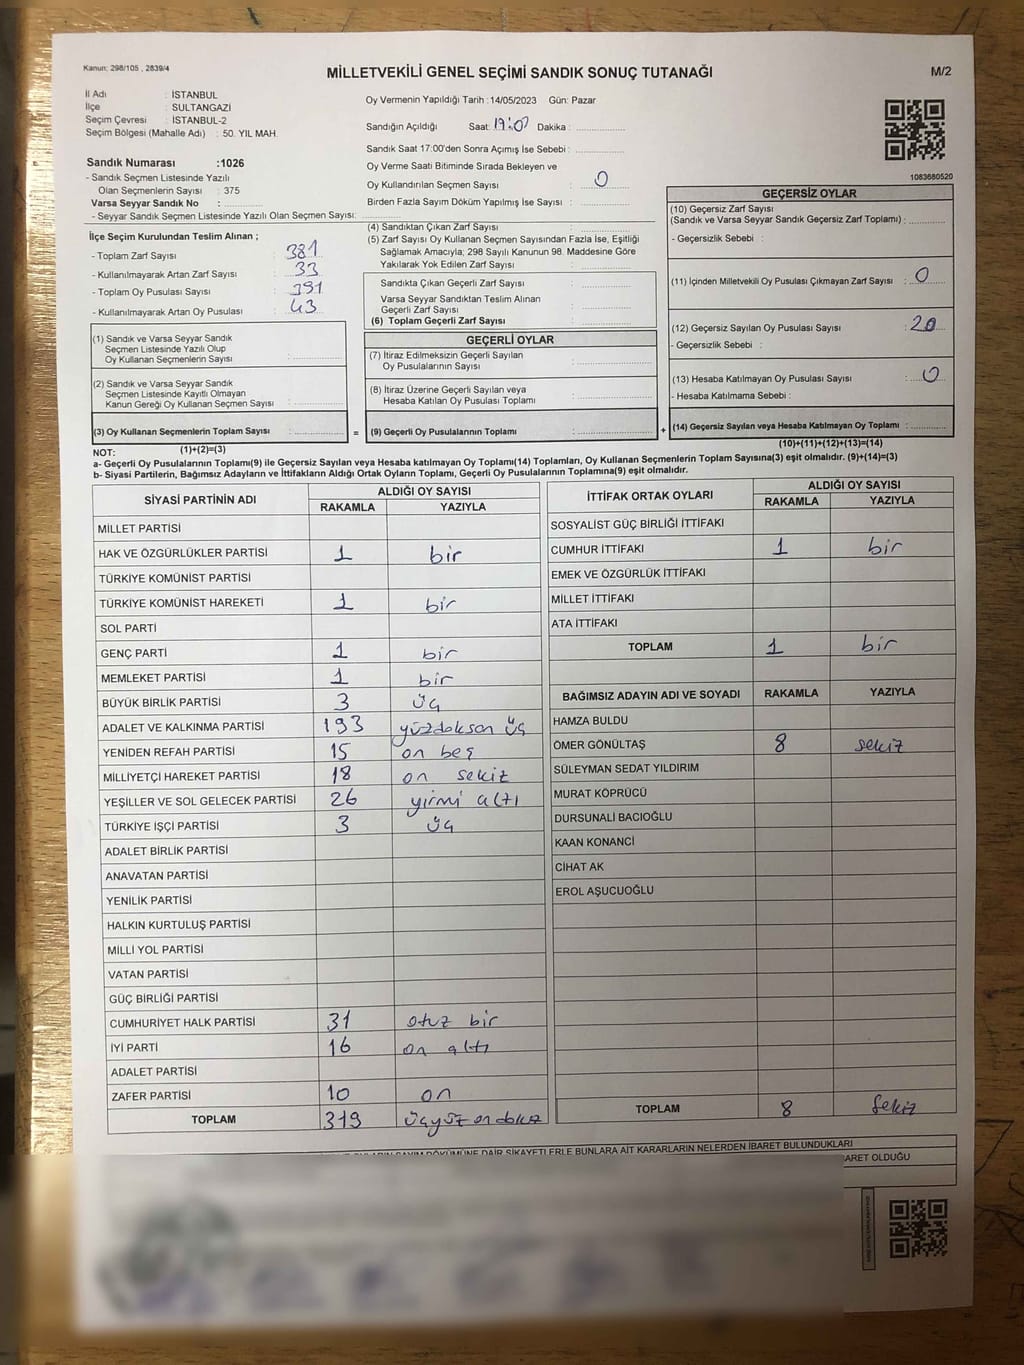 Kanun: 298/105 , 2839/4
MİLLETVEKİLİ GENEL SEÇİMİ SANDIK SONUÇ TUTANAĞI
M/2
İl Adı : İSTANBUL
İlçe : SULTANGAZİ
Seçim Çevresi : İSTANBUL-2
Seçim Bölgesi (Mahalle Adı) : 50. YIL MAH.
Sandık Numarası :1026
- Sandık Seçmen Listesinde Yazılı
Olan Seçmenlerin Sayısı : 375
Varsa Seyyar Sandık No :
- Seyyar Sandık Seçmen Listesinde Yazılı Olan Seçmen Sayısı:
Oy Vermenin Yapıldığı Tarih :14/05/2023 Gün: Pazar
Sandığın Açıldığı Saat: 19:07 Dakika :
Sandık Saat 17:00'den Sonra Açımış İse Sebebi :
Oy Verme Saati Bitiminde Sırada Bekleyen ve
Oy Kullandırılan Seçmen Sayısı : 0
Birden Fazla Sayım Döküm Yapılmış İse Sayısı :
1083680520
İlçe Seçim Kurulundan Teslim Alınan ;
- Toplam Zarf Sayısı : 381
- Kullanılmayarak Artan Zarf Sayısı : 33
- Toplam Oy Pusulası Sayısı : 391
- Kullanılmayarak Artan Oy Pusulası : 43
(1) Sandık ve Varsa Seyyar Sandık
Seçmen Listesinde Yazılı Olup
Oy Kullanan Seçmenlerin Sayısı :
(2) Sandık ve Varsa Seyyar Sandık
Seçmen Listesinde Kayıtlı Olmayan
Kanun Gereği Oy Kullanan Seçmen Sayısı :
(3) Oy Kullanan Seçmenlerin Toplam Sayısı : =
(1)+(2)=(3)
(4) Sandıktan Çıkan Zarf Sayısı :
(5) Zarf Sayısı Oy Kullanan Seçmen Sayısından Fazla İse, Eşitliği
Sağlamak Amacıyla; 298 Sayılı Kanunun 98. Maddesine Göre
Yakılarak Yok Edilen Zarf Sayısı :
Sandıkta Çıkan Geçerli Zarf Sayısı :
Varsa Seyyar Sandıktan Teslim Alınan
Geçerli Zarf Sayısı :
(6) Toplam Geçerli Zarf Sayısı :
GEÇERLİ OYLAR
(7) İtiraz Edilmeksizin Geçerli Sayılan
Oy Pusulalarının Sayısı :
(8) İtiraz Üzerine Geçerli Sayılan veya
Hesaba Katılan Oy Pusulası Toplamı :
(9) Geçerli Oy Pusulalarının Toplamı : +
GEÇERSİZ OYLAR
(10) Geçersiz Zarf Sayısı
(Sandık ve Varsa Seyyar Sandık Geçersiz Zarf Toplamı) :
- Geçersizlik Sebebi :
(11) İçinden Milletvekili Oy Pusulası Çıkmayan Zarf Sayısı : 0
(12) Geçersiz Sayılan Oy Pusulası Sayısı : 20
- Geçersizlik Sebebi :
(13) Hesaba Katılmayan Oy Pusulası Sayısı : 0
- Hesaba Katılmama Sebebi :
(14) Geçersiz Sayılan veya Hesaba Katılmayan Oy Toplamı :
(10)+(11)+(12)+(13)=(14)
NOT:
a- Geçerli Oy Pusulalarının Toplamı(9) ile Geçersiz Sayılan veya Hesaba katılmayan Oy Toplamı(14) Toplamları, Oy Kullanan Seçmenlerin Toplam Sayısına(3) eşit olmalıdır. (9)+(14)=(3)
b- Siyasi Partilerin, Bağımsız Adayların ve İttifakların Aldığı Ortak Oyların Toplamı, Geçerli Oy Pusulalarının Toplamına(9) eşit olmalıdır.
SİYASİ PARTİNİN ADI ALDIĞI OY SAYISI
RAKAMLA YAZIYLA
MİLLET PARTİSİ
HAK VE ÖZGÜRLÜKLER PARTİSİ 1 bir
TÜRKİYE KOMÜNİST PARTİSİ
TÜRKİYE KOMÜNİST HAREKETİ 1 bir
SOL PARTİ
GENÇ PARTİ 1 bir
MEMLEKET PARTİSİ 1 bir
BÜYÜK BİRLİK PARTİSİ 3 üç
ADALET VE KALKINMA PARTİSİ 193 yüzdoksan üç
YENİDEN REFAH PARTİSİ 15 on beş
MİLLİYETÇİ HAREKET PARTİSİ 18 on sekiz
YEŞİLLER VE SOL GELECEK PARTİSİ 26 yirmi altı
TÜRKİYE İŞÇİ PARTİSİ 3 üç
ADALET BİRLİK PARTİSİ
ANAVATAN PARTİSİ
YENİLİK PARTİSİ
HALKIN KURTULUŞ PARTİSİ
MİLLİ YOL PARTİSİ
VATAN PARTİSİ
GÜÇ BİRLİĞİ PARTİSİ
CUMHURİYET HALK PARTİSİ 31 otuz bir
İYİ PARTİ 16 on altı
ADALET PARTİSİ
ZAFER PARTİSİ 10 on
TOPLAM 319 üçyüz ondokuz
İTTİFAK ORTAK OYLARI ALDIĞI OY SAYISI
RAKAMLA YAZIYLA
SOSYALİST GÜÇ BİRLİĞİ İTTİFAKI
CUMHUR İTTİFAKI 1 bir
EMEK VE ÖZGÜRLÜK İTTİFAKI
MİLLET İTTİFAKI
ATA İTTİFAKI
TOPLAM 1 bir
BAĞIMSIZ ADAYIN ADI VE SOYADI RAKAMLA YAZIYLA
HAMZA BULDU
ÖMER GÖNÜLTAŞ 8 sekiz
SÜLEYMAN SEDAT YILDIRIM
MURAT KÖPRÜCÜ
DURSUNALİ BACIOĞLU
KAAN KONANCİ
CİHAT AK
EROL AŞUCUOĞLU
TOPLAM 8 sekiz
DÖKÜMÜNE DAİR ŞİKAYETLERLE BUNLARA AİT KARARLARIN NELERDEN İBARET BULUNDUKLARI
BARET OLDUĞU